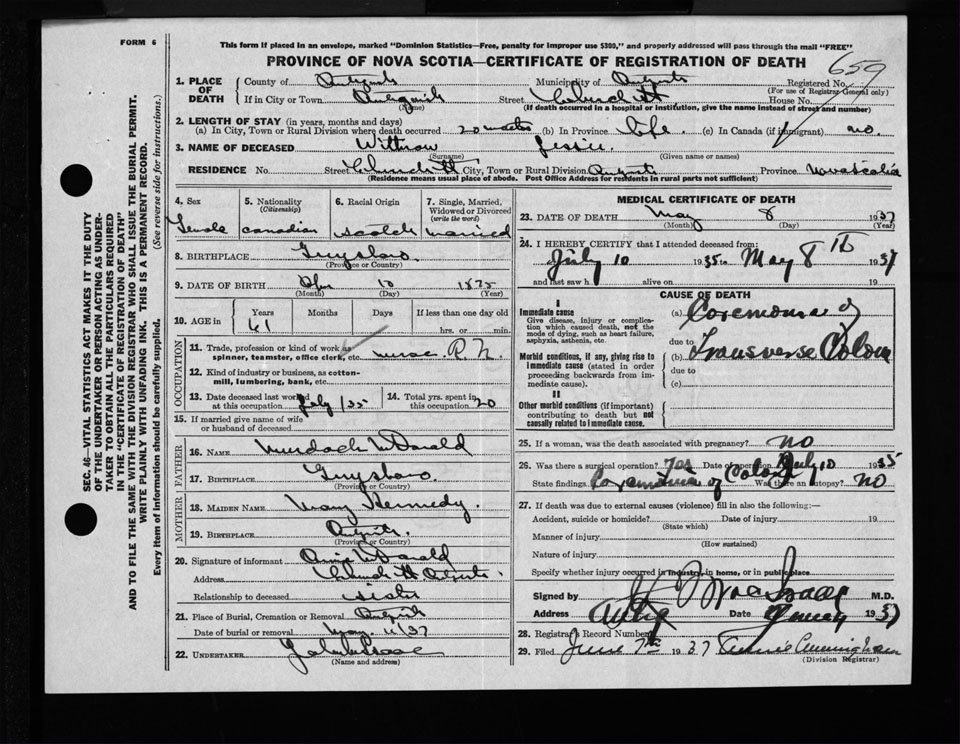 FORM 6
This form if placed in an envelope, marked "Dominion Statistics—Free, penalty for improper use $300," and properly addressed will pass through the mail "FREE"
PROVINCE OF NOVA SCOTIA—CERTIFICATE OF REGISTRATION OF DEATH
659
1. PLACE OF DEATH
County of Antigonish Municipality of Antigonish Registered No.
(For use of Registrar General only)
If in City or Town Antigonish Street Church St House No.
(Name) (If death occurred in a hospital or institution, give the name instead of street and number)
2. LENGTH OF STAY (in years, months and days)
(a) In City, Town or Rural Division where death occurred 20 (b) In Province life. (c) In Canada (if immigrant) no.
3. NAME OF DECEASED Withrow Jessie.
(Surname) (Given name or names)
RESIDENCE No. Street Church St City, Town or Rural Division Antigonish Province Nova Scotia
(Residence means usual place of abode. Post Office Address for residents in rural parts not sufficient)
4. Sex Female
5. Nationality (Citizenship) Canadian
6. Racial Origin Scotch
7. Single, Married, Widowed or Divorced (write the word) married
8. BIRTHPLACE Guysboro.
(Province or Country)
9. DATE OF BIRTH 10 1875
(Month) (Day) (Year)
10. AGE in Years Months Days If less than one day old
61 hrs. or min.
OCCUPATION
11. Trade, profession or kind of work as spinner, teamster, office clerk, etc. nurse. R. N.
12. Kind of industry or business, as cotton-mill, lumbering, bank, etc.
13. Date deceased last worked at this occupation July /35
14. Total yrs. spent in this occupation 20
15. If married give name of wife or husband of deceased
FATHER
16. NAME Murdoch McDonald
17. BIRTHPLACE Guysboro.
(Province or Country)
MOTHER
18. MAIDEN NAME Mary Kennedy.
19. BIRTHPLACE Antigonish.
(Province or Country)
20. Signature of informant McDonald
Address Church St Antigonish
Relationship to deceased sister
21. Place of Burial, Cremation or Removal Antigonish
Date of burial or removal May. 11/37
22. UNDERTAKER
(Name and address)
MEDICAL CERTIFICATE OF DEATH
23. DATE OF DEATH May 8 1937
(Month) (Day) (Year)
24. I HEREBY CERTIFY that I attended deceased from:
July 10 1935 to May 8th 1937
and last saw h alive on 19
CAUSE OF DEATH
I
Immediate cause
Give disease, injury or complication which caused death, not the mode of dying, such as heart failure, asphyxia, asthenia, etc.
(a) Coremoma of
due to
Morbid conditions, if any, giving rise to immediate cause (stated in order proceeding backwards from immediate cause).
(b) Transverse Colon
due to
(c)
II
Other morbid conditions (if important) contributing to death but not causally related to immediate cause.
25. If a woman, was the death associated with pregnancy? no
26. Was there a surgical operation? Yes Date of operation July 10 1935
State findings Coremoma of Colon Was there an autopsy? No
27. If death was due to external causes (violence) fill in also the following:
Accident, suicide or homicide? Date of injury 19
(State which)
Manner of injury
(How sustained)
Nature of injury
Specify whether injury occurred in industry, in home, or in public place
Signed by M.D.
Address Antig Date 1937
28. Registrar's Record Number
29. Filed June 7th 1937 Annie Cunningham
(Division Registrar)
SEC. 46—VITAL STATISTICS ACT MAKES IT THE DUTY
OF THE UNDERTAKER OR PERSON ACTING AS UNDERTAKER TO OBTAIN ALL THE PARTICULARS REQUIRED
IN THE "CERTIFICATE OF REGISTRATION OF DEATH"
AND TO FILE THE SAME WITH THE DIVISION REGISTRAR WHO SHALL ISSUE THE BURIAL PERMIT.
WRITE PLAINLY WITH UNFADING INK. THIS IS A PERMANENT RECORD.
Every item of information should be carefully supplied. (See reverse side for instructions.)